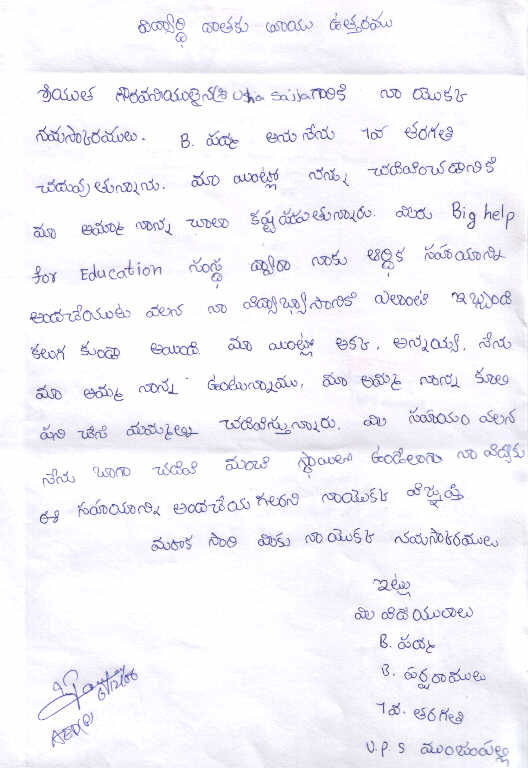 విద్యార్థి దాతకు రాయు ఉత్తరము
శ్రీయుత గౌరవనీయులైన Usha గారికి నా యొక్క
నమస్కారములు. B. పద్మ అను నేను 7వ తరగతి
చదువుతున్నాను. మా యింట్లో నన్ను చదివించడానికి
మా అమ్మ నాన్న చాలా కష్టపడుతున్నారు. మీరు Big help
for Education సంస్థ ద్వారా నాకు ఆర్ధిక సహాయాన్ని
అందచేయుట వలన నా విద్యాభ్యాసానికి ఎలాంటి ఇబ్బంది
కలుగ కుండా అయింది. మా యింట్లో అక్క, అన్నయ్య, నేను
మా అమ్మ నాన్న ఉంటున్నాము. మా అమ్మ నాన్న కూలి
పని చేసి మమ్మల్ని చదివిస్తున్నారు. మీ సహాయం వలన
నేను బాగా చదివి మంచి స్థాయిలో ఉండేలాగా నా విద్యకు
ఈ సహాయాన్ని అందచేయ గలరని నాయొక్క విజ్ఞప్తి
మరొక సారి మీకు నా యొక్క నమస్కారములు
ఇట్లు
మీ విధేయురాలు
B. పద్మ
B. పర్వతాలు
7వ. తరగతి
U.P.S